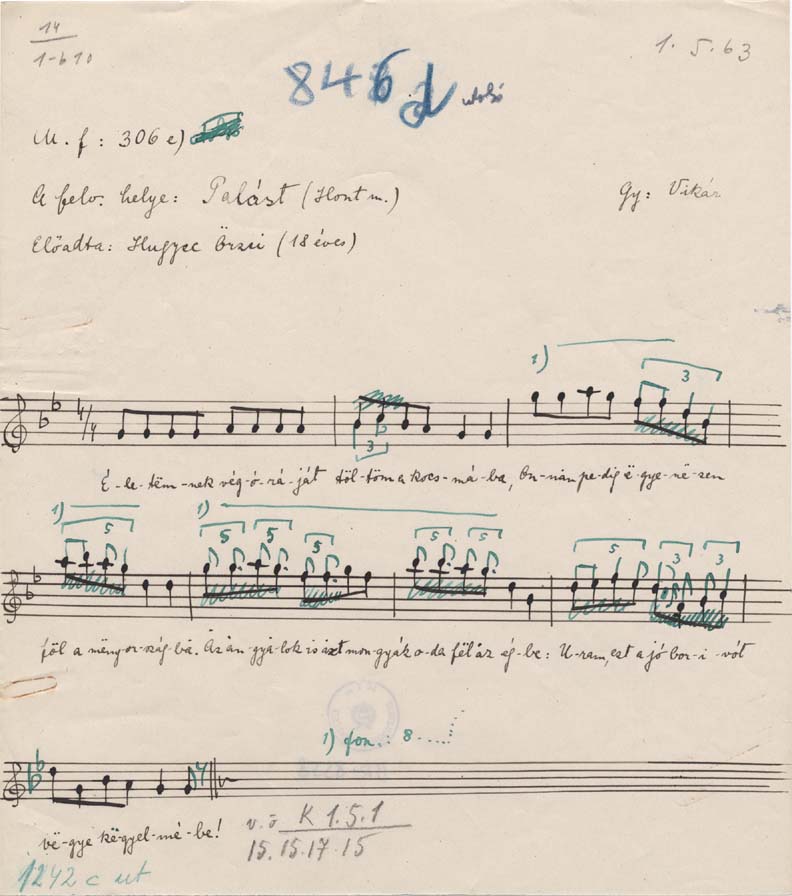 14
1-b10
1. 5. 63
846 d utolsó
M. f: 306 e)
A felv. helye: Palást (Hont m.)
Gy: Vikár
Előadta: Hugyec Örzsi (18 éves)
1)
3
4/4
3
É-le-tëm-nek vég-ó-rá-ját töl-töm a kocs-má-ba, On-nan pe-dig ë-gye-në-sen
1) 5
1) 5 5 5
5 5
5 3 3
föl a mëny-or-szág-ba. Az an-gya-lok is aszt mon-gyák o-da fël az ég-be: U-ram, ezt a jó bor-i-vót
1) fon.: 8
vë-gye kë-gyel-mé-be!
v. ö K 1.5.1
15. 15. 17. 15
1242 c ut